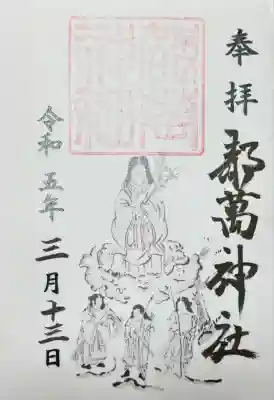 奉拝
都萬神社
令和五年
三月十三日